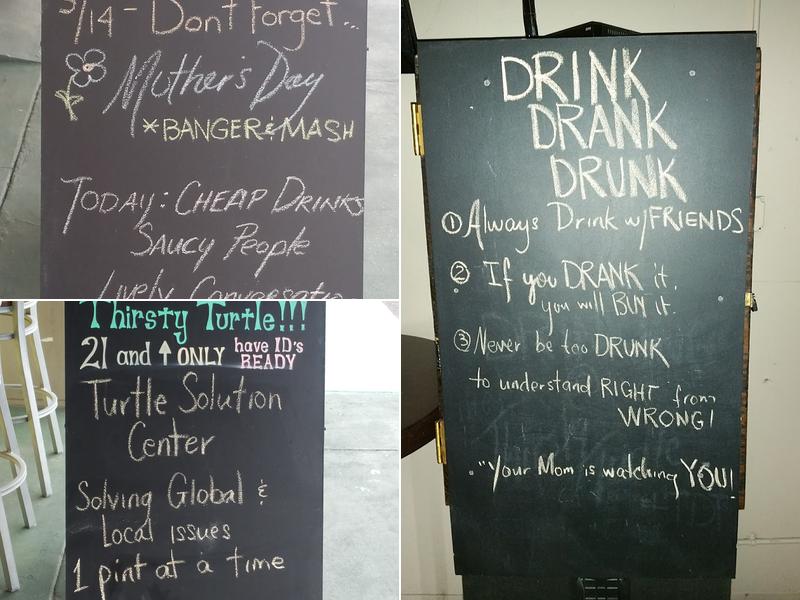 5/14 - Don't forget...
Mother's Day
*BANGER & MASH
TODAY: CHEAP DRINKS
SAUCY People
Lively Conversatio
Thirsty Turtle!!!
21 and ↑ ONLY have ID's READY
Turtle Solution
Center
Solving Global &
Local Issues
1 pint at a time
DRINK
DRANK
DRUNK
① Always Drink w/FRIENDS
② If you DRANK it,
you will BUY it.
③ Never be too DRUNK
to understand RIGHT from
WRONG!
"Your Mom is watching YOU!